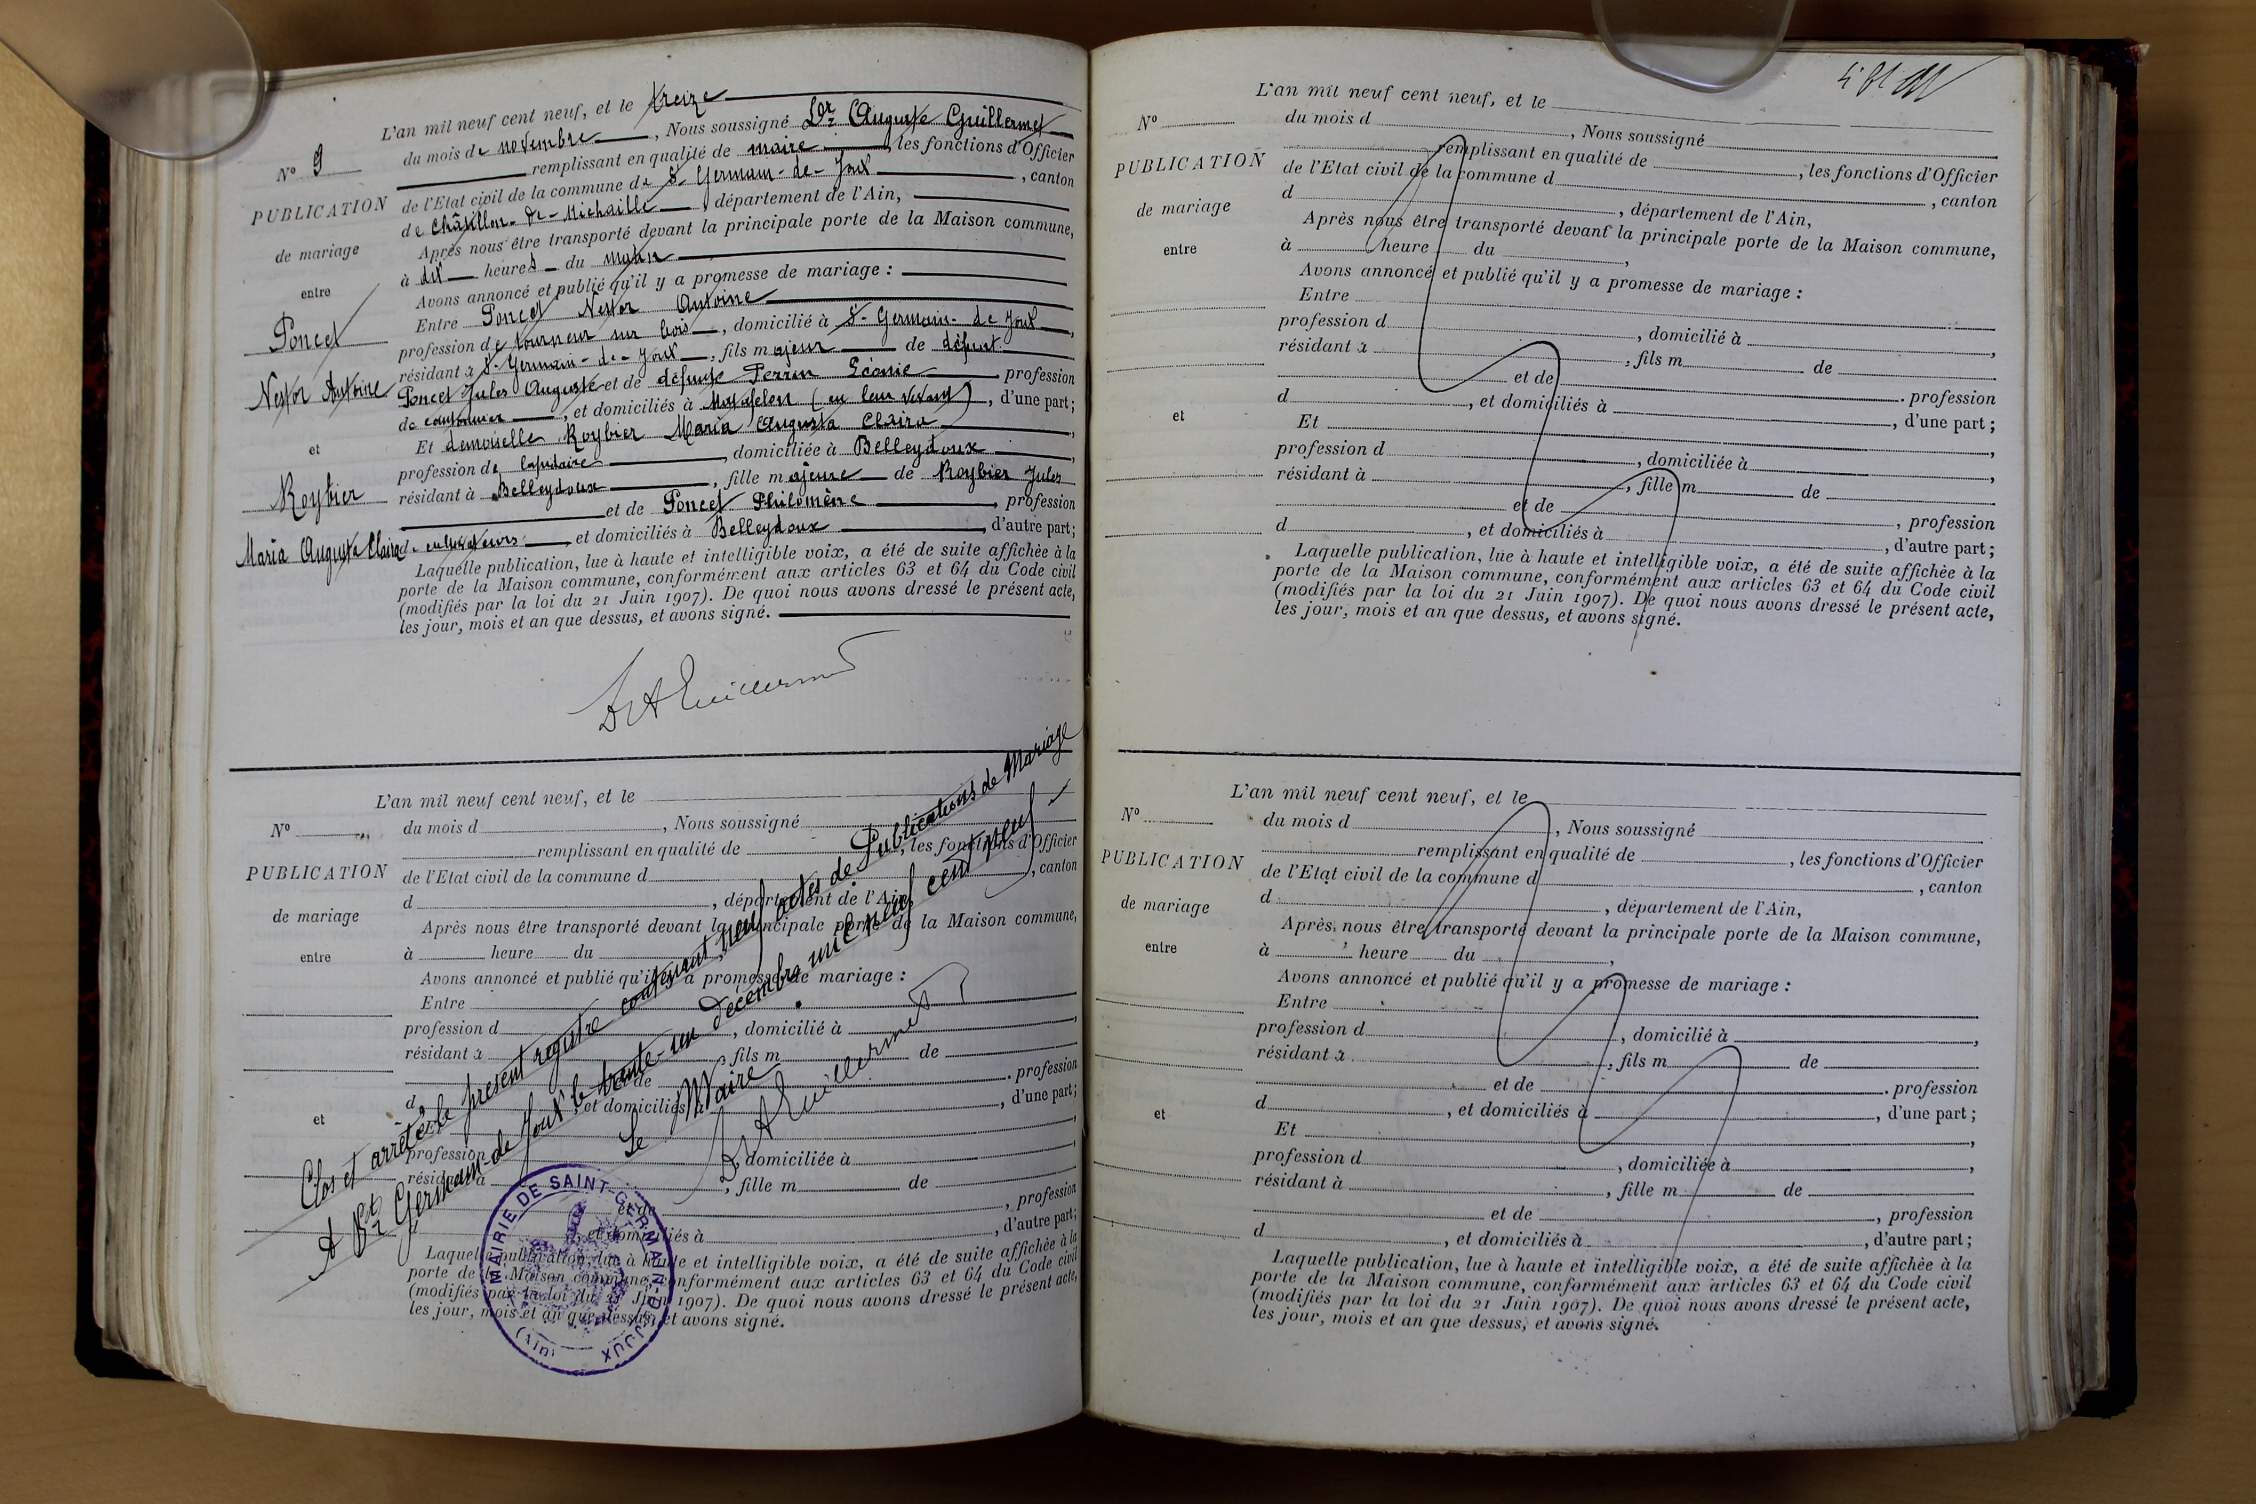 L'an mil neuf cent neuf, et le treize
du mois de novembre, Nous soussigné Dr Auguste Guillermet
N° 9
remplissant en qualité de maire, les fonctions d'Officier
PUBLICATION
de l'Etat civil de la commune de St Germain-de-Joux, canton
de Châtillon-de-Michaille, département de l'Ain,
de mariage
Après nous être transporté devant la principale porte de la Maison commune,
à dix heures du matin
entre
Avons annoncé et publié qu'il y a promesse de mariage :
Entre Poncet Nestor Antoine
Poncet
profession de tourneur sur bois, domicilié à St Germain-de Joux,
résidant à St Germain-de-Joux, fils majeur de défunt
Nestor Antoine
Poncet Jules Auguste et de défunte Perrin Léonie profession
de cantonnier, et domiciliés à (en leur vivant), d'une part;
et
Et demoiselle Roybier Maria Augusta Claira,
profession de lapidaire, domiciliée à Belleydoux,
Roybier
résidant à Belleydoux, fille majeure de Roybier Jules
et de Poncet Philomène, profession
Maria Augusta Claira
de cultivateurs, et domiciliés à Belleydoux, d'autre part;
Laquelle publication, lue à haute et intelligible voix, a été de suite affichée à la
porte de la Maison commune, conformément aux articles 63 et 64 du Code civil
(modifiés par la loi du 21 Juin 1907). De quoi nous avons dressé le présent acte,
les jour, mois et an que dessus, et avons signé.
Dr A Guillermet
L'an mil neuf cent neuf, et le
N°
du mois d, Nous soussigné
remplissant en qualité de, les fonctions d'Officier
PUBLICATION
de l'Etat civil de la commune d, canton
d, département de l'Ain,
de mariage
Après nous être transporté devant la principale porte de la Maison commune,
entre
à heure du
Avons annoncé et publié qu'il y a promesse de mariage :
Entre
profession d, domicilié à
résidant à, fils m de
et de profession
d, et domiciliés à, d'une part;
et
profession, domiciliée à
résidant à, fille m de
et de, profession
, et domiciliés à, d'autre part;
Laquelle publication, lue à haute et intelligible voix, a été de suite affichée à la
porte de la Maison commune, conformément aux articles 63 et 64 du Code civil
(modifiés par la loi du 21 Juin 1907). De quoi nous avons dressé le présent acte,
les jour, mois et an que dessus, et avons signé.
Clos et arrêté le présent registre contenant neuf actes de Publications de Mariage
A St Germain-de Joux le trente-un décembre mil neuf cent neuf
Le Maire
Dr A Guillermet
MAIRIE DE SAINT-GERMAIN-D-JOUX
(Ain)
L'an mil neuf cent neuf, et le
N°
du mois d, Nous soussigné
remplissant en qualité de, les fonctions d'Officier
PUBLICATION
de l'Etat civil de la commune d, canton
d, département de l'Ain,
de mariage
Après nous être transporté devant la principale porte de la Maison commune,
entre
à heure du,
Avons annoncé et publié qu'il y a promesse de mariage :
Entre
profession d, domicilié à,
résidant à, fils m de
et de. profession
d, et domiciliés à, d'une part;
et
Et,
profession d, domiciliée à,
résidant à, fille m de
et de, profession
d, et domiciliés à, d'autre part;
Laquelle publication, lue à haute et intelligible voix, a été de suite affichée à la
porte de la Maison commune, conformément aux articles 63 et 64 du Code civil
(modifiés par la loi du 21 Juin 1907). De quoi nous avons dressé le présent acte,
les jour, mois et an que dessus, et avons signé.
L'an mil neuf cent neuf, et le
N°
du mois d, Nous soussigné
remplissant en qualité de, les fonctions d'Officier
PUBLICATION
de l'Etat civil de la commune d, canton
d, département de l'Ain,
de mariage
Après nous être transporté devant la principale porte de la Maison commune,
entre
à heure du,
Avons annoncé et publié qu'il y a promesse de mariage :
Entre
profession d, domicilié à,
résidant à, fils m de
et de. profession
d, et domiciliés à, d'une part;
et
Et,
profession d, domiciliée à,
résidant à, fille m de
et de, profession
d, et domiciliés à, d'autre part;
Laquelle publication, lue à haute et intelligible voix, a été de suite affichée à la
porte de la Maison commune, conformément aux articles 63 et 64 du Code civil
(modifiés par la loi du 21 Juin 1907). De quoi nous avons dressé le présent acte,
les jour, mois et an que dessus, et avons signé.